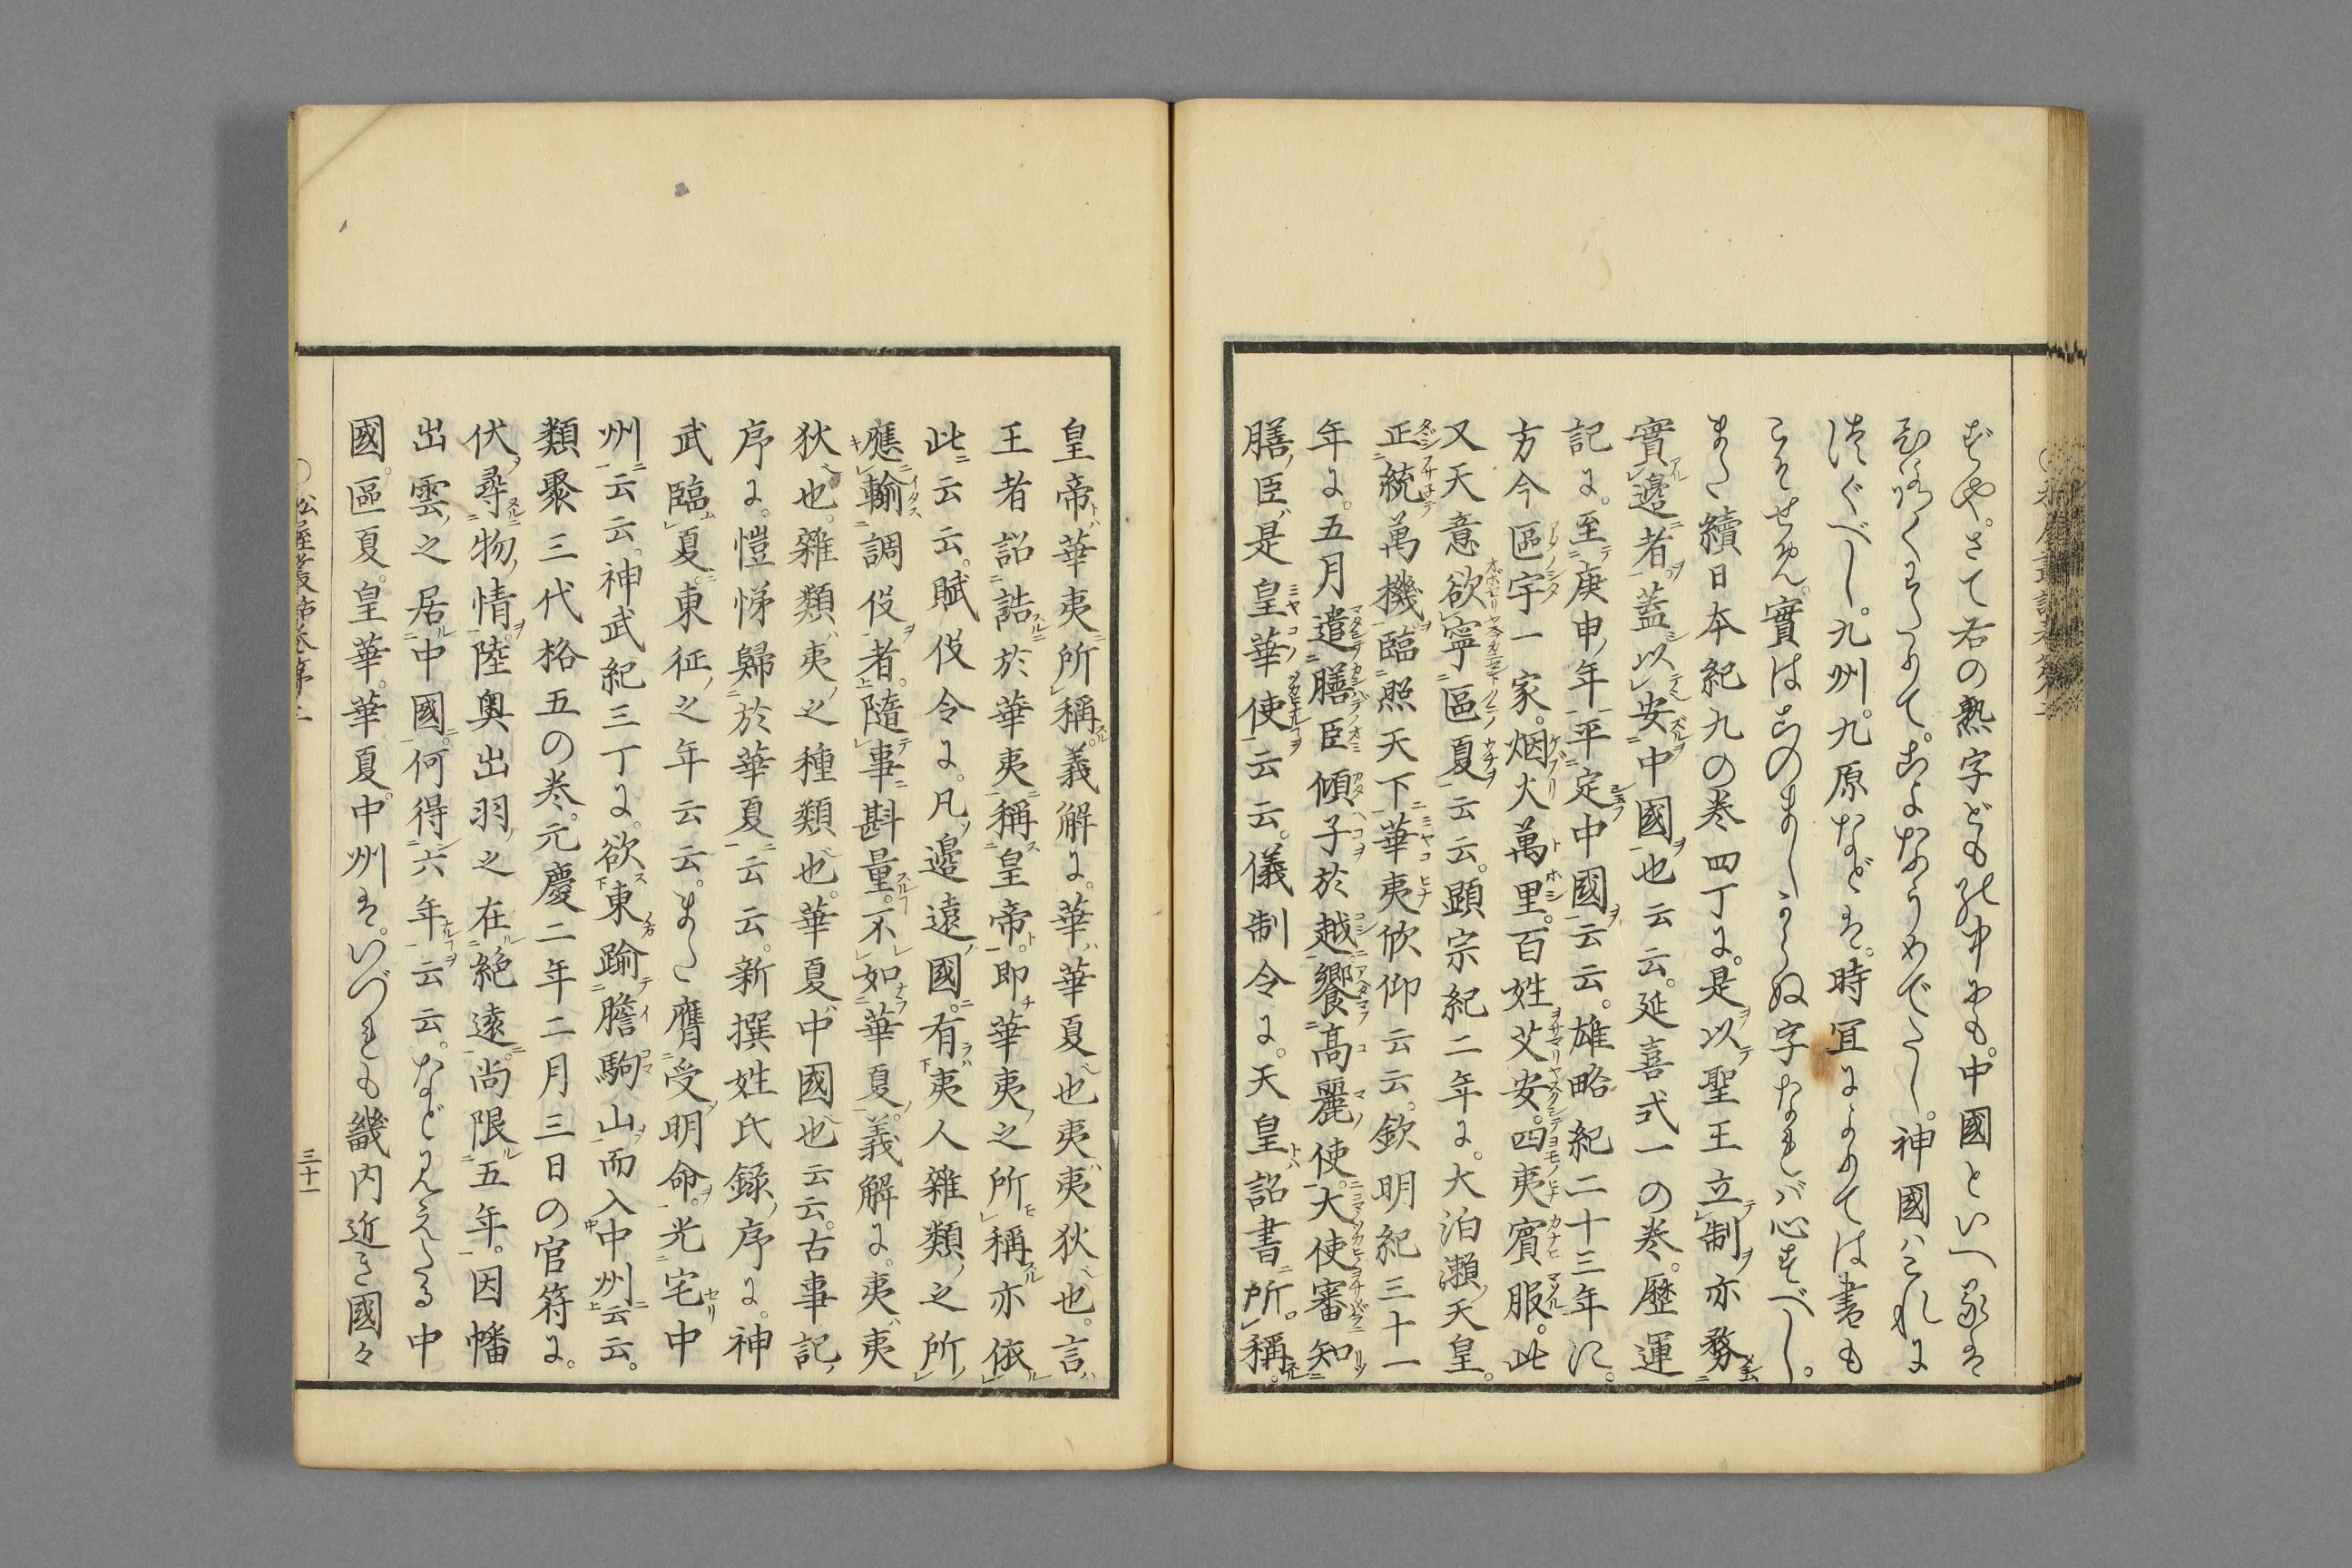 ずや。さて右の熟字どもの中にも。中國といへるは
ひろくわたりて。ことなうめでたし。神國ハこれに
つぐべし。九州。九原などは。時宜によりては書も
こそせめ。實はこのましからぬ字なれバ心すべし。
また續日本紀九の巻四丁に。是以聖王立制亦務
實邊者。蓋以安中國也云云。延喜式一の巻。歴運
記に。至庚申年平定中國云云。雄略紀二十三年に。
方今區宇一家。烟火萬里。百姓艾安。四夷賓服。此
又天意欲寧區夏云云。顕宗紀二年に。大泊瀬天皇。
正統萬機臨照天下華夷欣仰云云。欽明紀三十一
年に。五月遣膳臣傾子於越饗高麗使。大使審知
膳臣是皇華使云云。儀制令に。天皇詔書所稱。
皇帝華夷所稱。義解に。華華夏也夷夷狄也。言
王者詔誥於華夷稱皇帝。即華夷之所稱亦依
此云云。賦役令に。凡邊遠國。有夷人雜類之所
應輸調役者。隨事斟量。不如華夏。義解に。夷夷
狄也。雜類夷之種類也。華夏中國也云云。古事記
序に。愷悌歸於華夏云云。新撰姓氏録序に。神
武臨夏。東征之年云云。また膺受明命。光宅中
州云云。神武紀三丁に。欲東踰膽駒山而入中州云云。
類聚三代格五の巻。元慶二年二月三日の官符に。
伏尋物情。陸奥出羽之在絶遠。尚限五年。因幡
出雲之居中國。何得六年云云。などみえたる中
國。區夏。皇華。華夏。中州は。いづれも畿内近き國々
松屋叢話巻第二
三十一